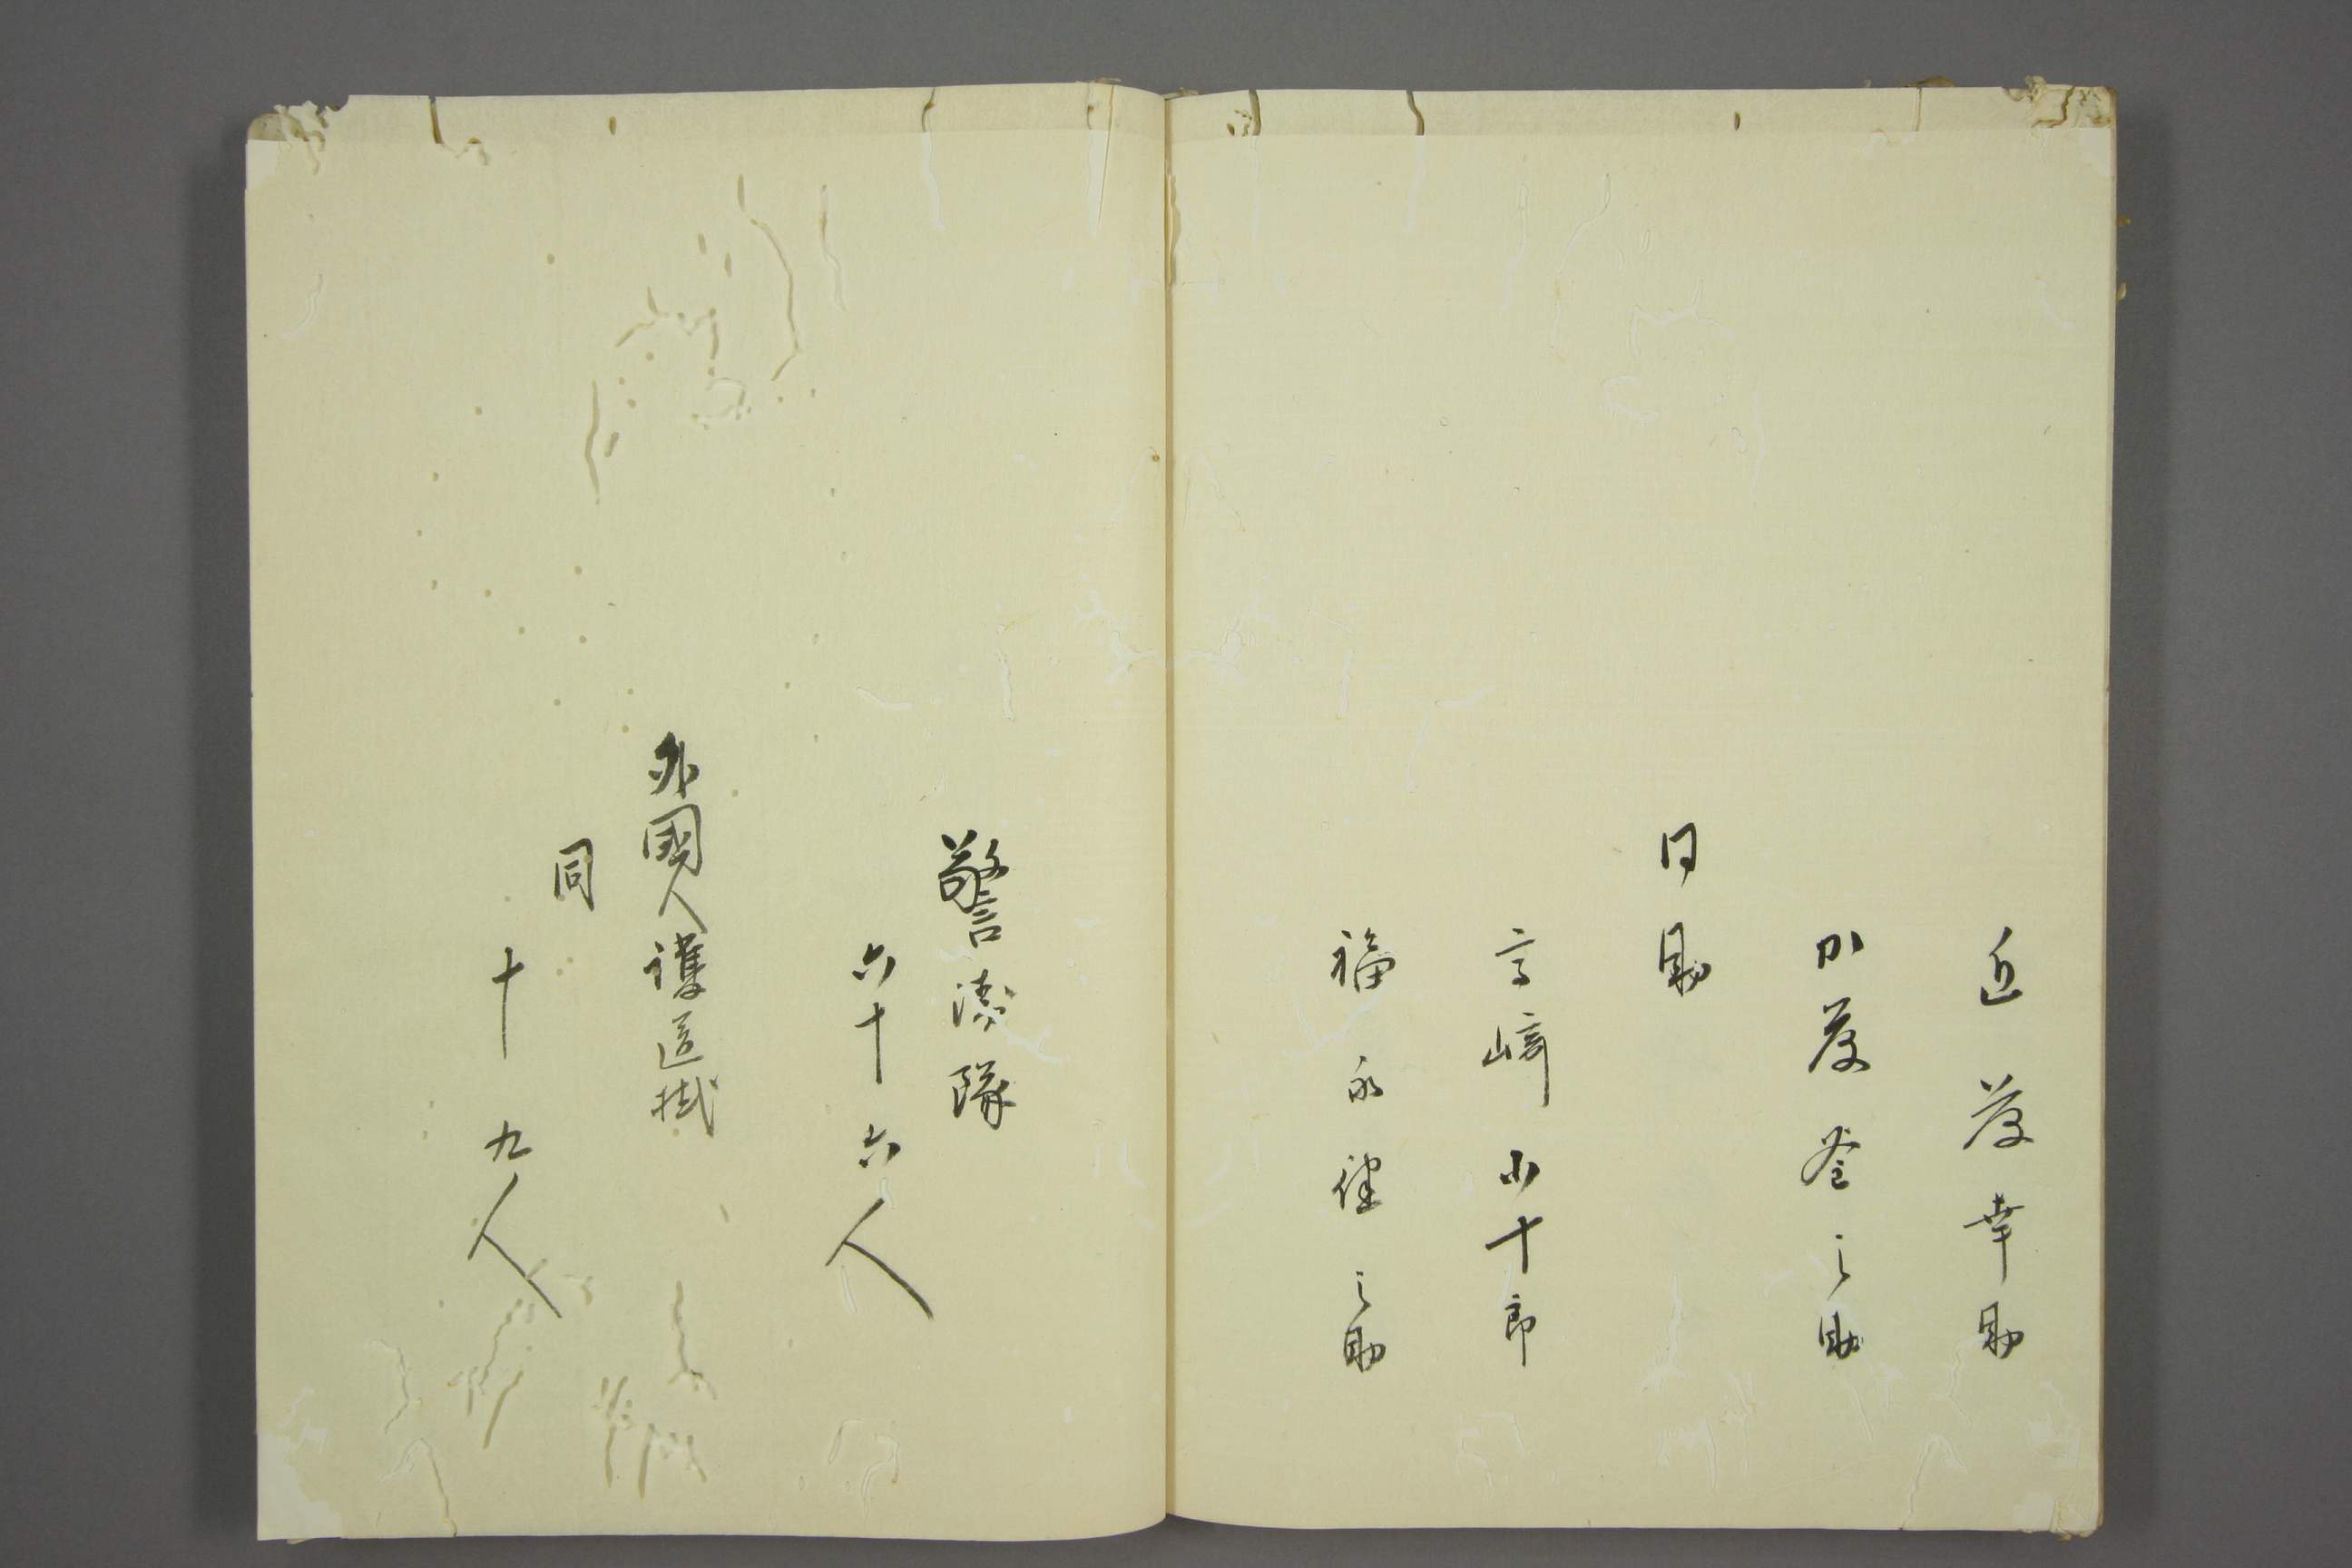 近藤幸助
加藤釜之助
同助
高﨑小十郎
福永健之助
警衛隊
六十六人
外國人護送掛
同
十九人